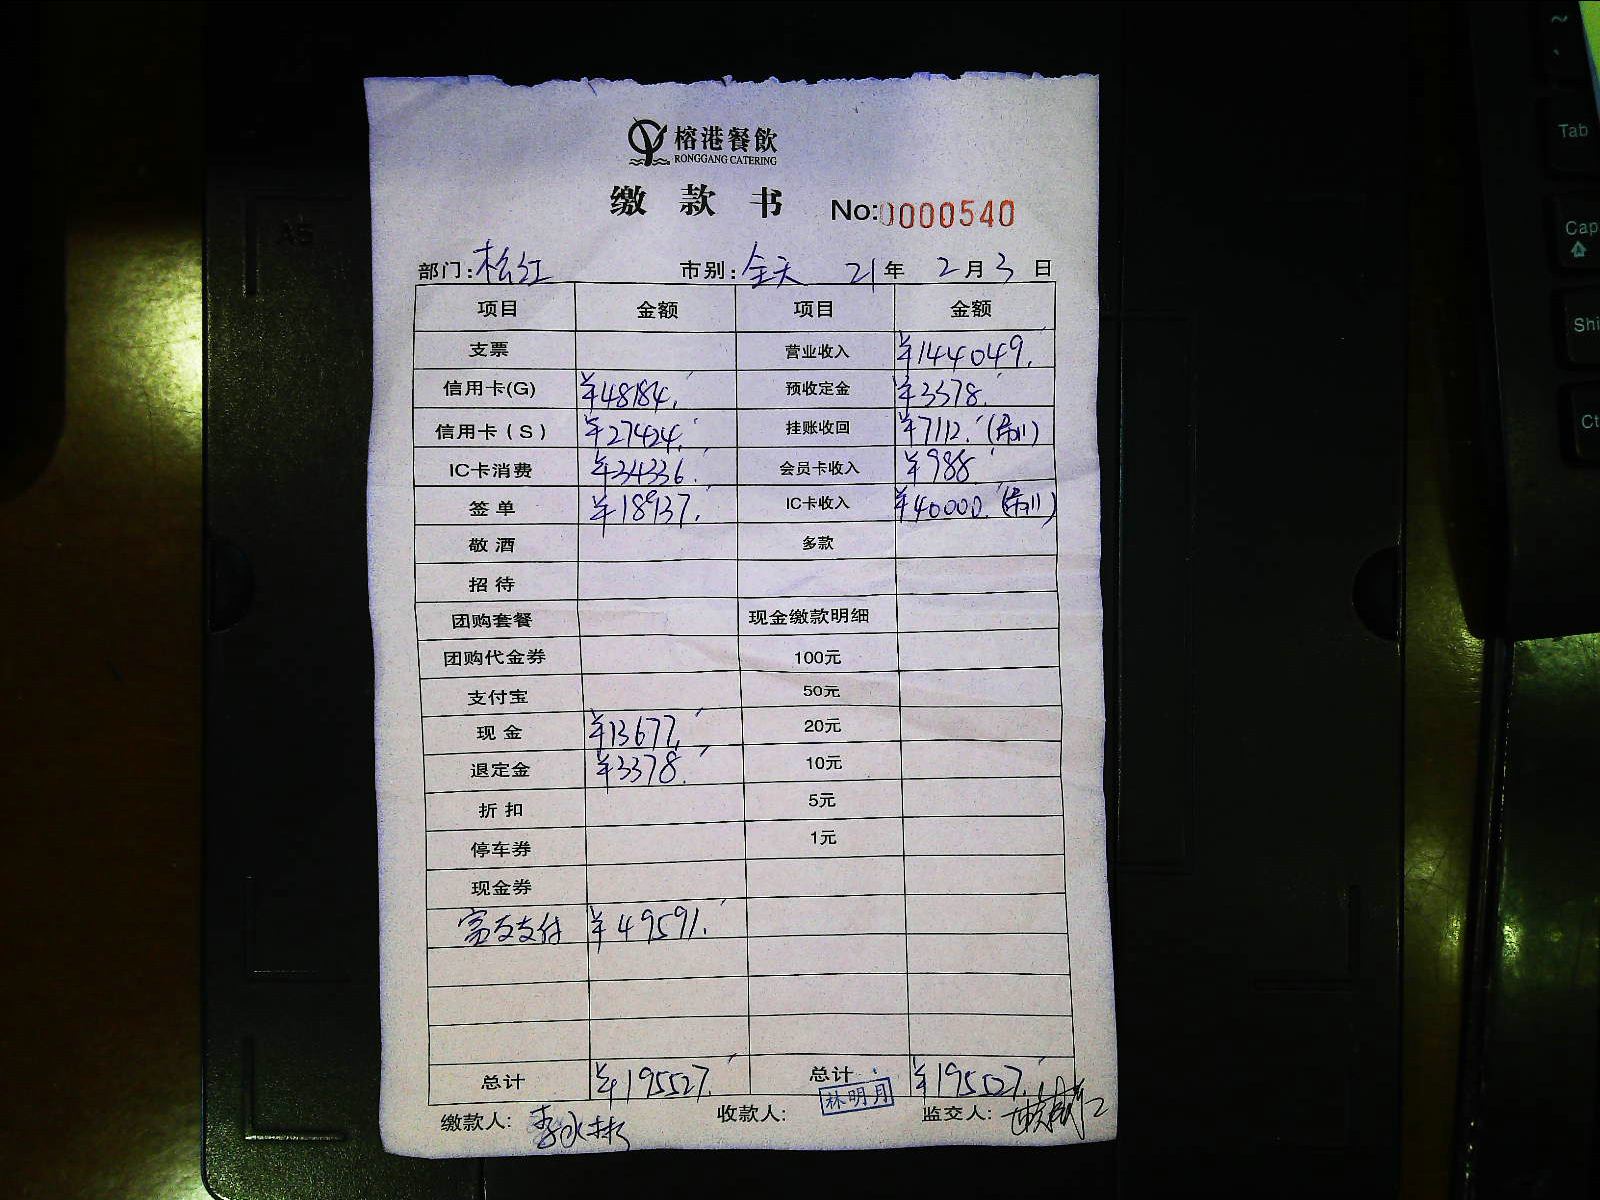 榕港餐飲
RONGGANG CATERING
缴款书 No:0000540
部门:松江 市别:全天 21年 2月 3日
项目 金额 项目 金额
支票 营业收入 ¥144049.
信用卡(G) ¥48184. 预收定金 ¥3378.
信用卡(S) ¥27424. 挂账收回 ¥7112.
IC卡消费 ¥34336. 会员卡收入 ¥988
签单 ¥18937. IC卡收入 ¥40000.
敬酒 多款
招待
团购套餐 现金缴款明细
团购代金券 100元
支付宝 50元
现金 ¥13677. 20元
退定金 ¥3378. 10元
折扣 5元
停车券 1元
现金券
富友支付 ¥49591.
总计 ¥195527. 总计 ¥195527.
缴款人: 李永彬 收款人: 林明月 监交人:
~
`
Tab
Cap
Shi
Ct